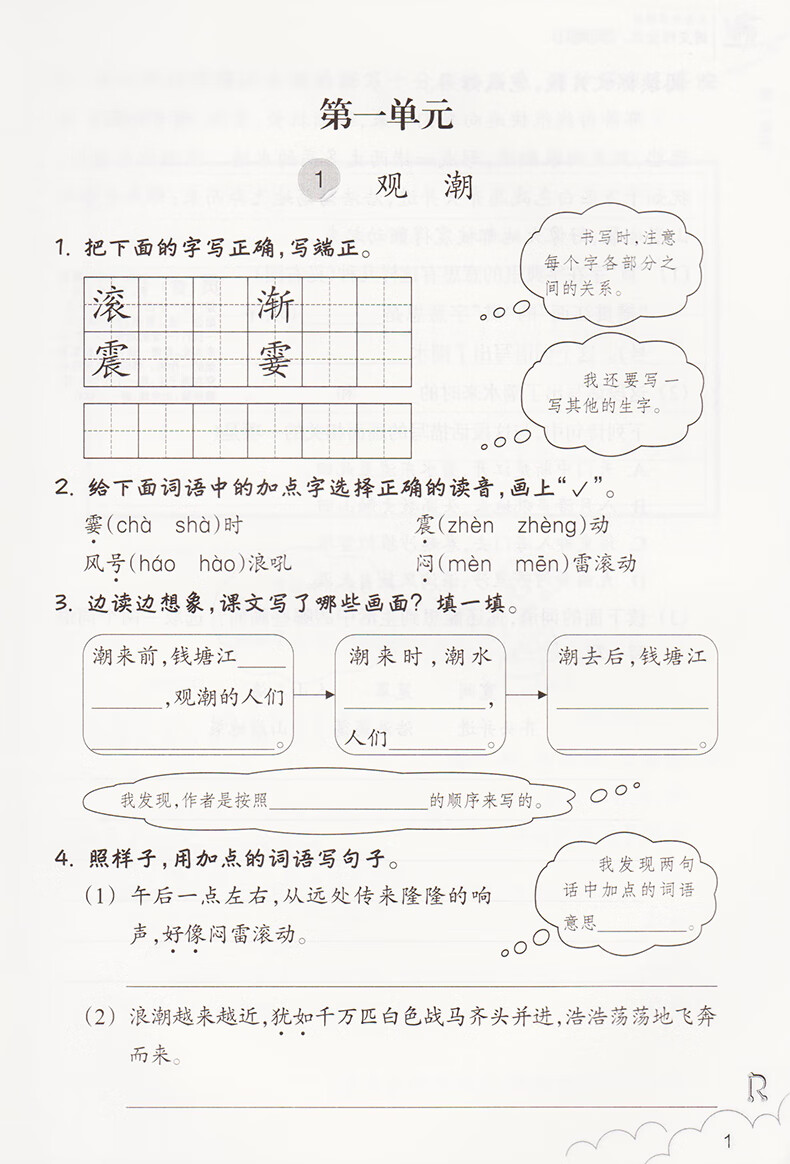 第一单元
1 观 潮
1. 把下面的字写正确,写端正。
书写时,注意
每个字各部分之
间的关系。
滚 渐
震 霎
我还要写
写其他的生字。
2. 给下面词语中的加点字选择正确的读音,画上“✓”。
霎(chà shà)时 震(zhèn zhèng)动
风号(háo hào)浪吼 闷(mèn mēn)雷滚动
3. 边读边想象,课文写了哪些画面? 填一填。
潮来前,钱塘江____
______,观潮的人们
____________。
潮来时,潮水
____________,
人们________。
潮去后,钱塘江
____________
____________。
我发现,作者是按照____________的顺序来写的。
4. 照样子,用加点的词语写句子。
我发现两句
话中加点的词语
意思________。
(1) 午后一点左右,从远处传来隆隆的响
声,好像闷雷滚动。
(2) 浪潮越来越近,犹如千万匹白色战马齐头并进,浩浩荡荡地飞奔
而来。
R
1